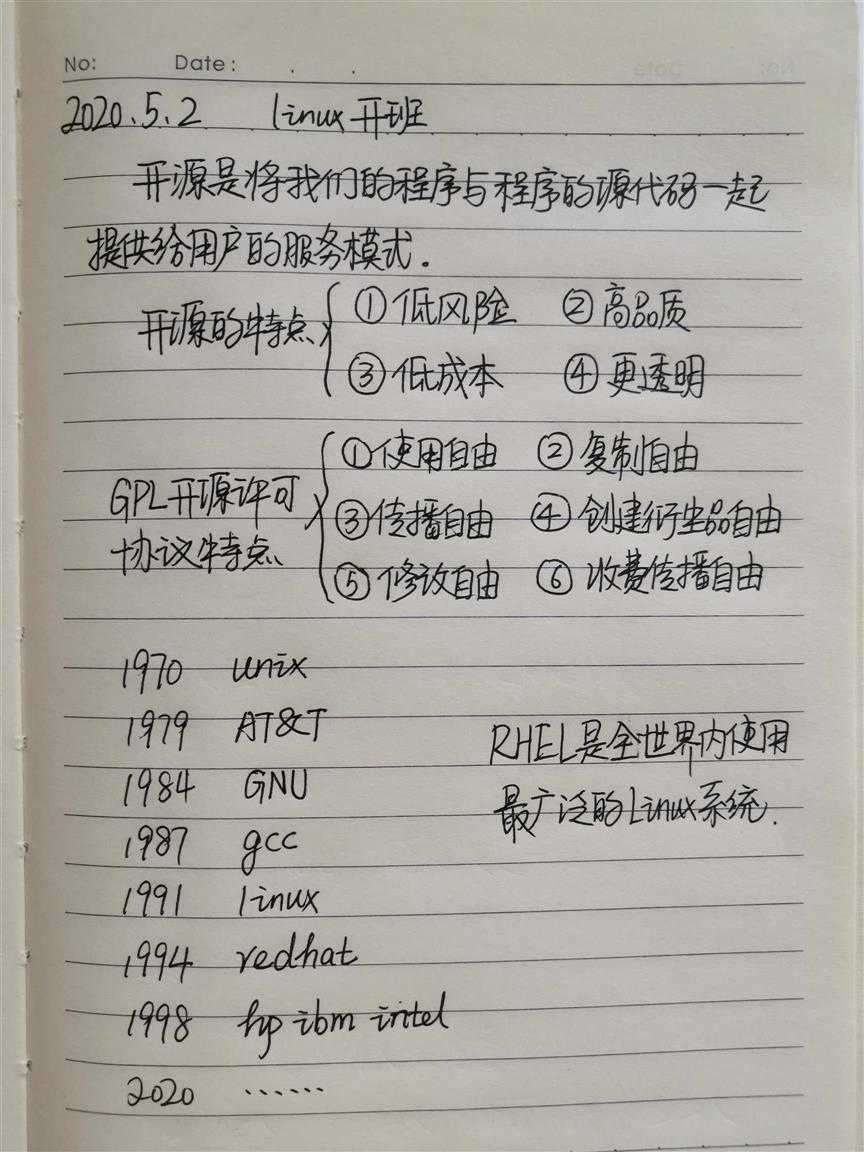 No: Date: . .
2020.5.2 linux开班
开源是将我们的程序与程序的源代码一起
提供给用户的服务模式.
开源的特点 ①低风险 ②高品质
③低成本 ④更透明
GPL开源许可协议特点 ①使用自由 ②复制自由
③传播自由 ④创建衍生品自由
⑤修改自由 ⑥收费传播自由
1970 unix
1979 AT&T
1984 GNU
1987 gcc
1991 linux
1994 redhat
1998 hp ibm intel
2020 ······
RHEL是全世界内使用
最广泛的Linux系统.